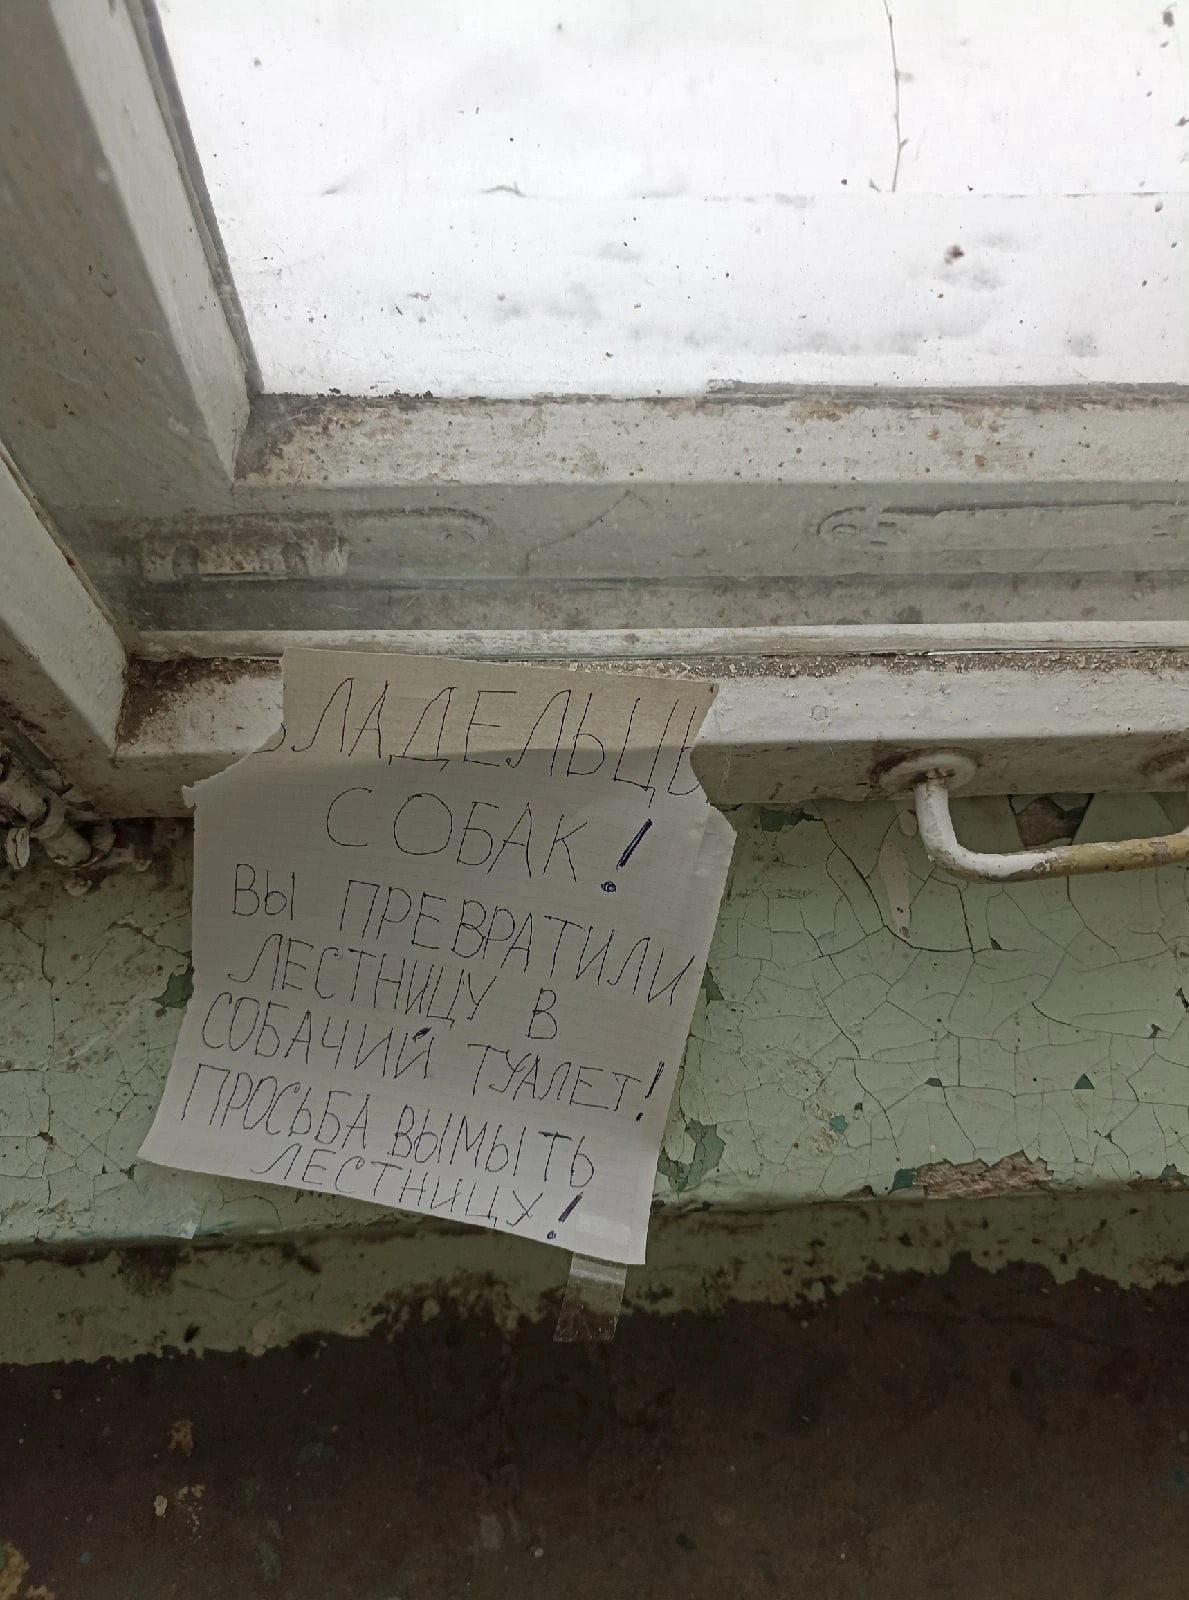 ВЛАДЕЛЬЦЫ
СОБАК!
ВЫ ПРЕВРАТИЛИ
ЛЕСТНИЦУ В
СОБАЧИЙ ТУАЛЕТ!
ПРОСЬБА ВЫМЫТЬ
ЛЕСТНИЦУ!